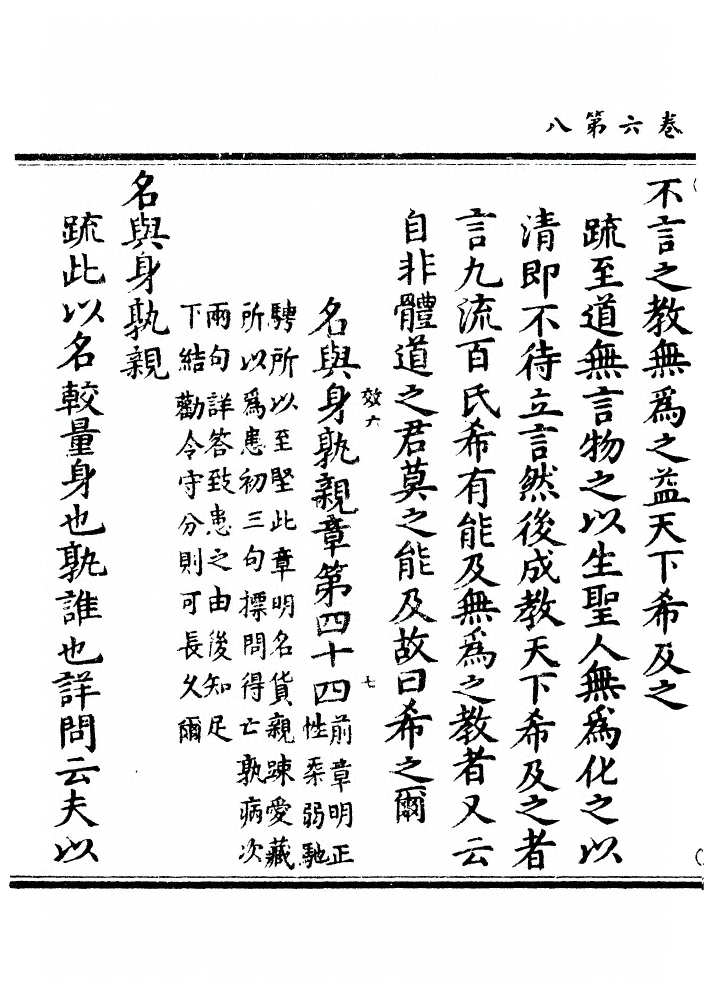 卷六第八
不言之教無爲之益天下希及之
疏至道無言物之以生聖人無爲化之以
清即不待立言然後成教天下希及之者
言九流百氏希有能及無爲之教者又云
自非體道之君莫之能及故曰希之爾
效六 七
名與身孰親章第四十四 前章明正
性柔弱馳
騁所以至堅此章明名貨親踈愛藏
所以爲患初三句摽問得亡孰病次
兩句詳答致患之由後知足
下結勸令守分則可長久爾
名與身孰親
疏此以名較量身也孰誰也詳問云夫以